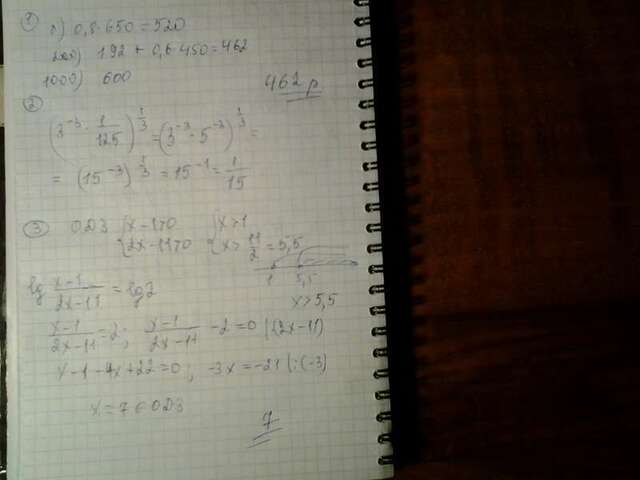 1) 0) 0,8·650=520
200) 192 + 0,6·450=462
1000) 600
462 р
2) (3^-3 · 1/125)^1/3 = (3^-3 · 5^-3)^1/3 =
= (15^-3)^1/3 = 15^-1 = 1/15
3) ОДЗ {x-1>0 {x>1
{2x-11>0 {x> 11/2 = 5,5
1 5,5
lg x-1/2x-11 = lg2
x>5,5
x-1/2x-11 = 2; x-1/2x-11 -2=0 |·(2x-11)
x-1-4x+22=0; -3x=-21 |:(-3)
x=7 ∈ ОДЗ
7